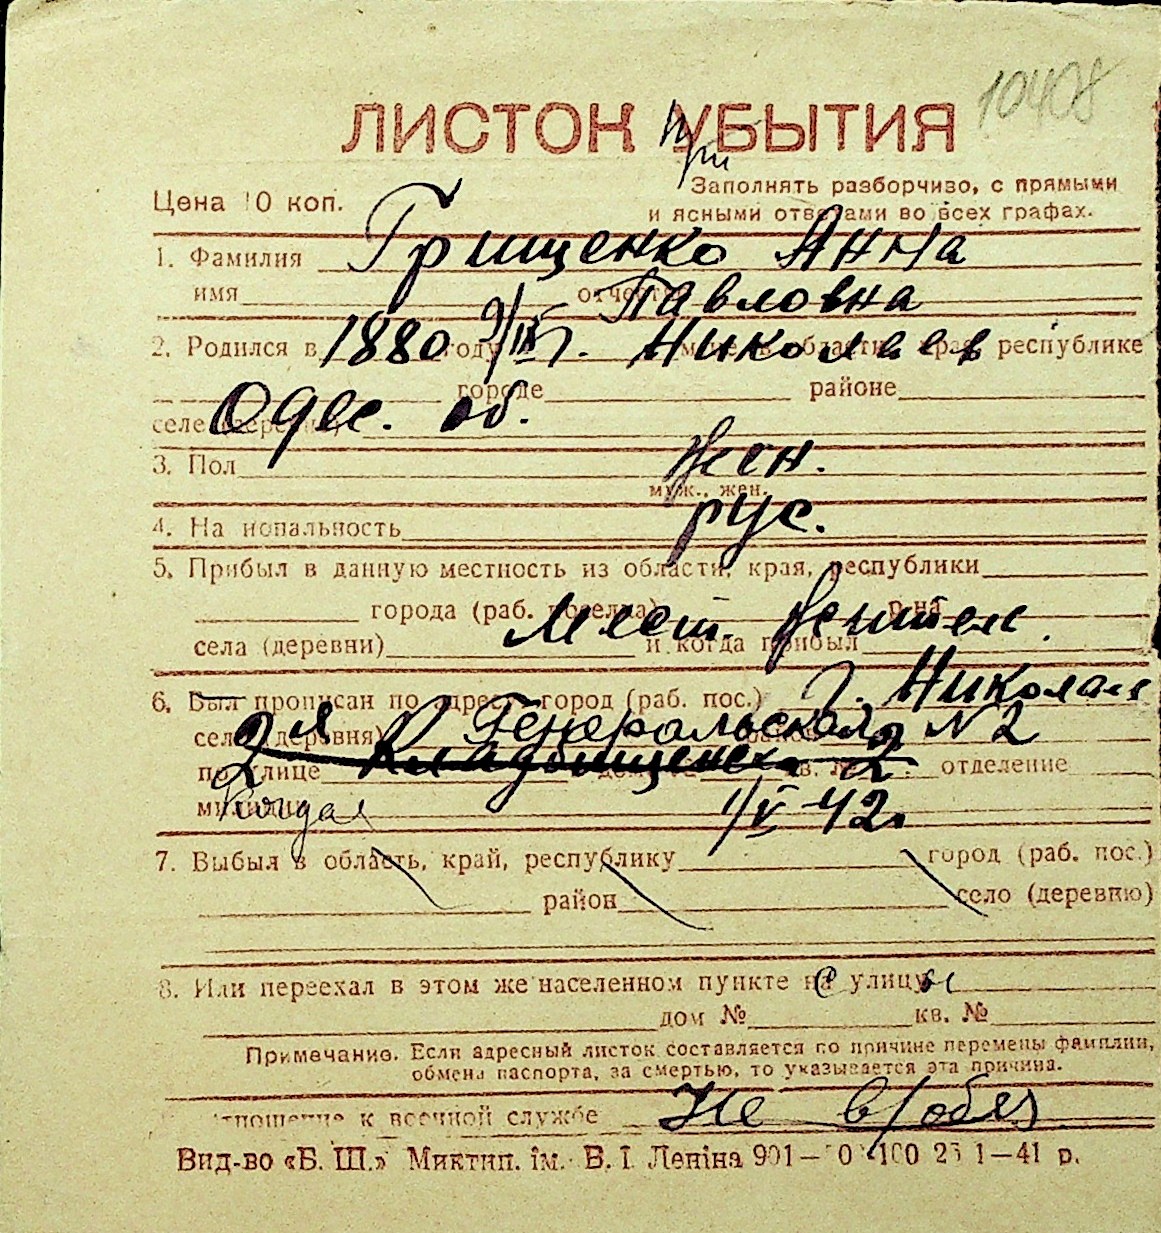 10408
ЛИСТОК УБЫТИЯ
при
Цена 10 коп.
Заполнять разборчиво, с прямыми
и ясными ответами во всех графах.
1. Фамилия Грищенко Анна
имя отчество Павловна
2. Родился в 1880 году г. Николаев республике
городе районе
селе (деревне) Одес. об.
3. Пол жен.
муж., жен.
4. Национальность рус.
5. Прибыл в данную местность из области, края, республики
города (раб. поселка) р-на
Мест. житель.
села (деревни) и когда прибыл
6. Был прописан по адресу город (раб. пос.) г. Николаев
село (деревня) 2я Генеральская N 2
по улице Кладбищенская 2 кв. № отделение
милиции 1/V 42.
7. Выбыл в область, край, республику город (раб. пос.)
район село (деревню)
8. Или переехал в этом же населенном пункте на улицу
дом № кв. №
Примечание. Если адресный листок составляется по причине перемены фамилии,
обмена паспорта, за смертью, то указывается эта причина.
отношение к военной службе Не в/обяз
Вид-во «Б. Ш.» Миктип. ім. В. І. Леніна 901— 1—41 р.